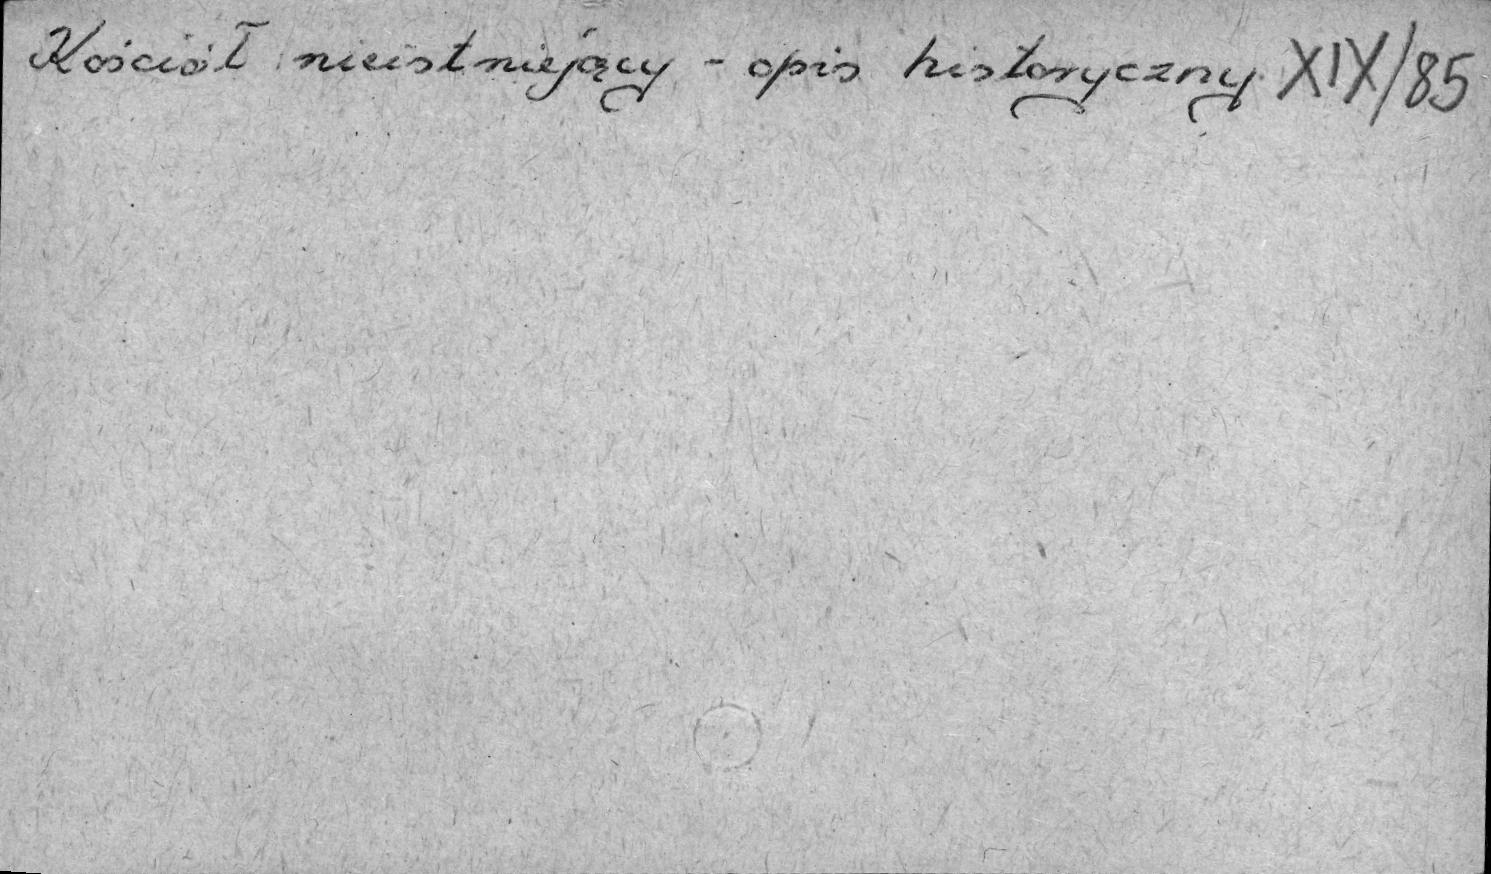 Kościół nieistniejący - opis historyczny XIX/85